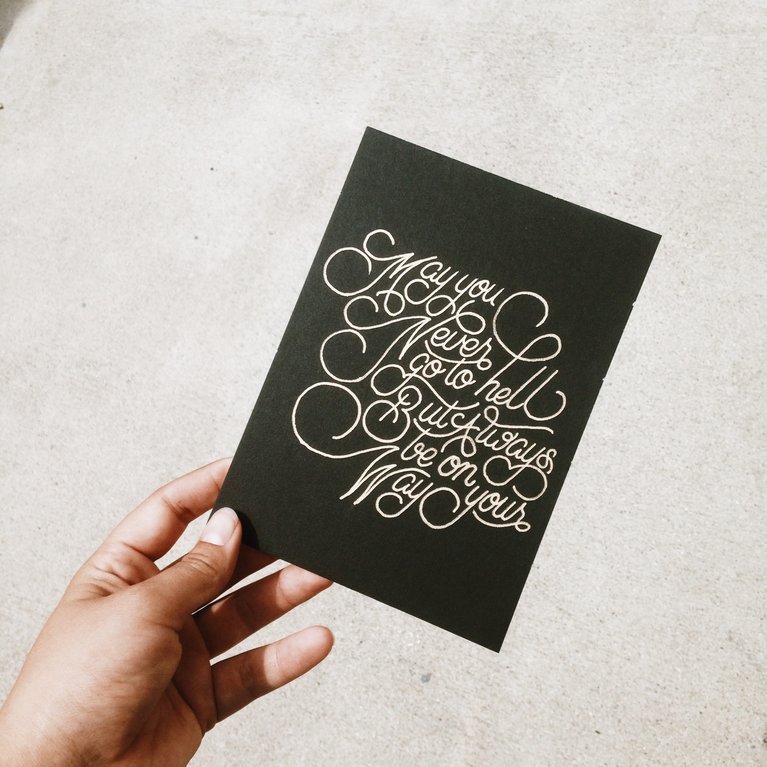 May you
Never
go to hell
But Always
be on your
Way